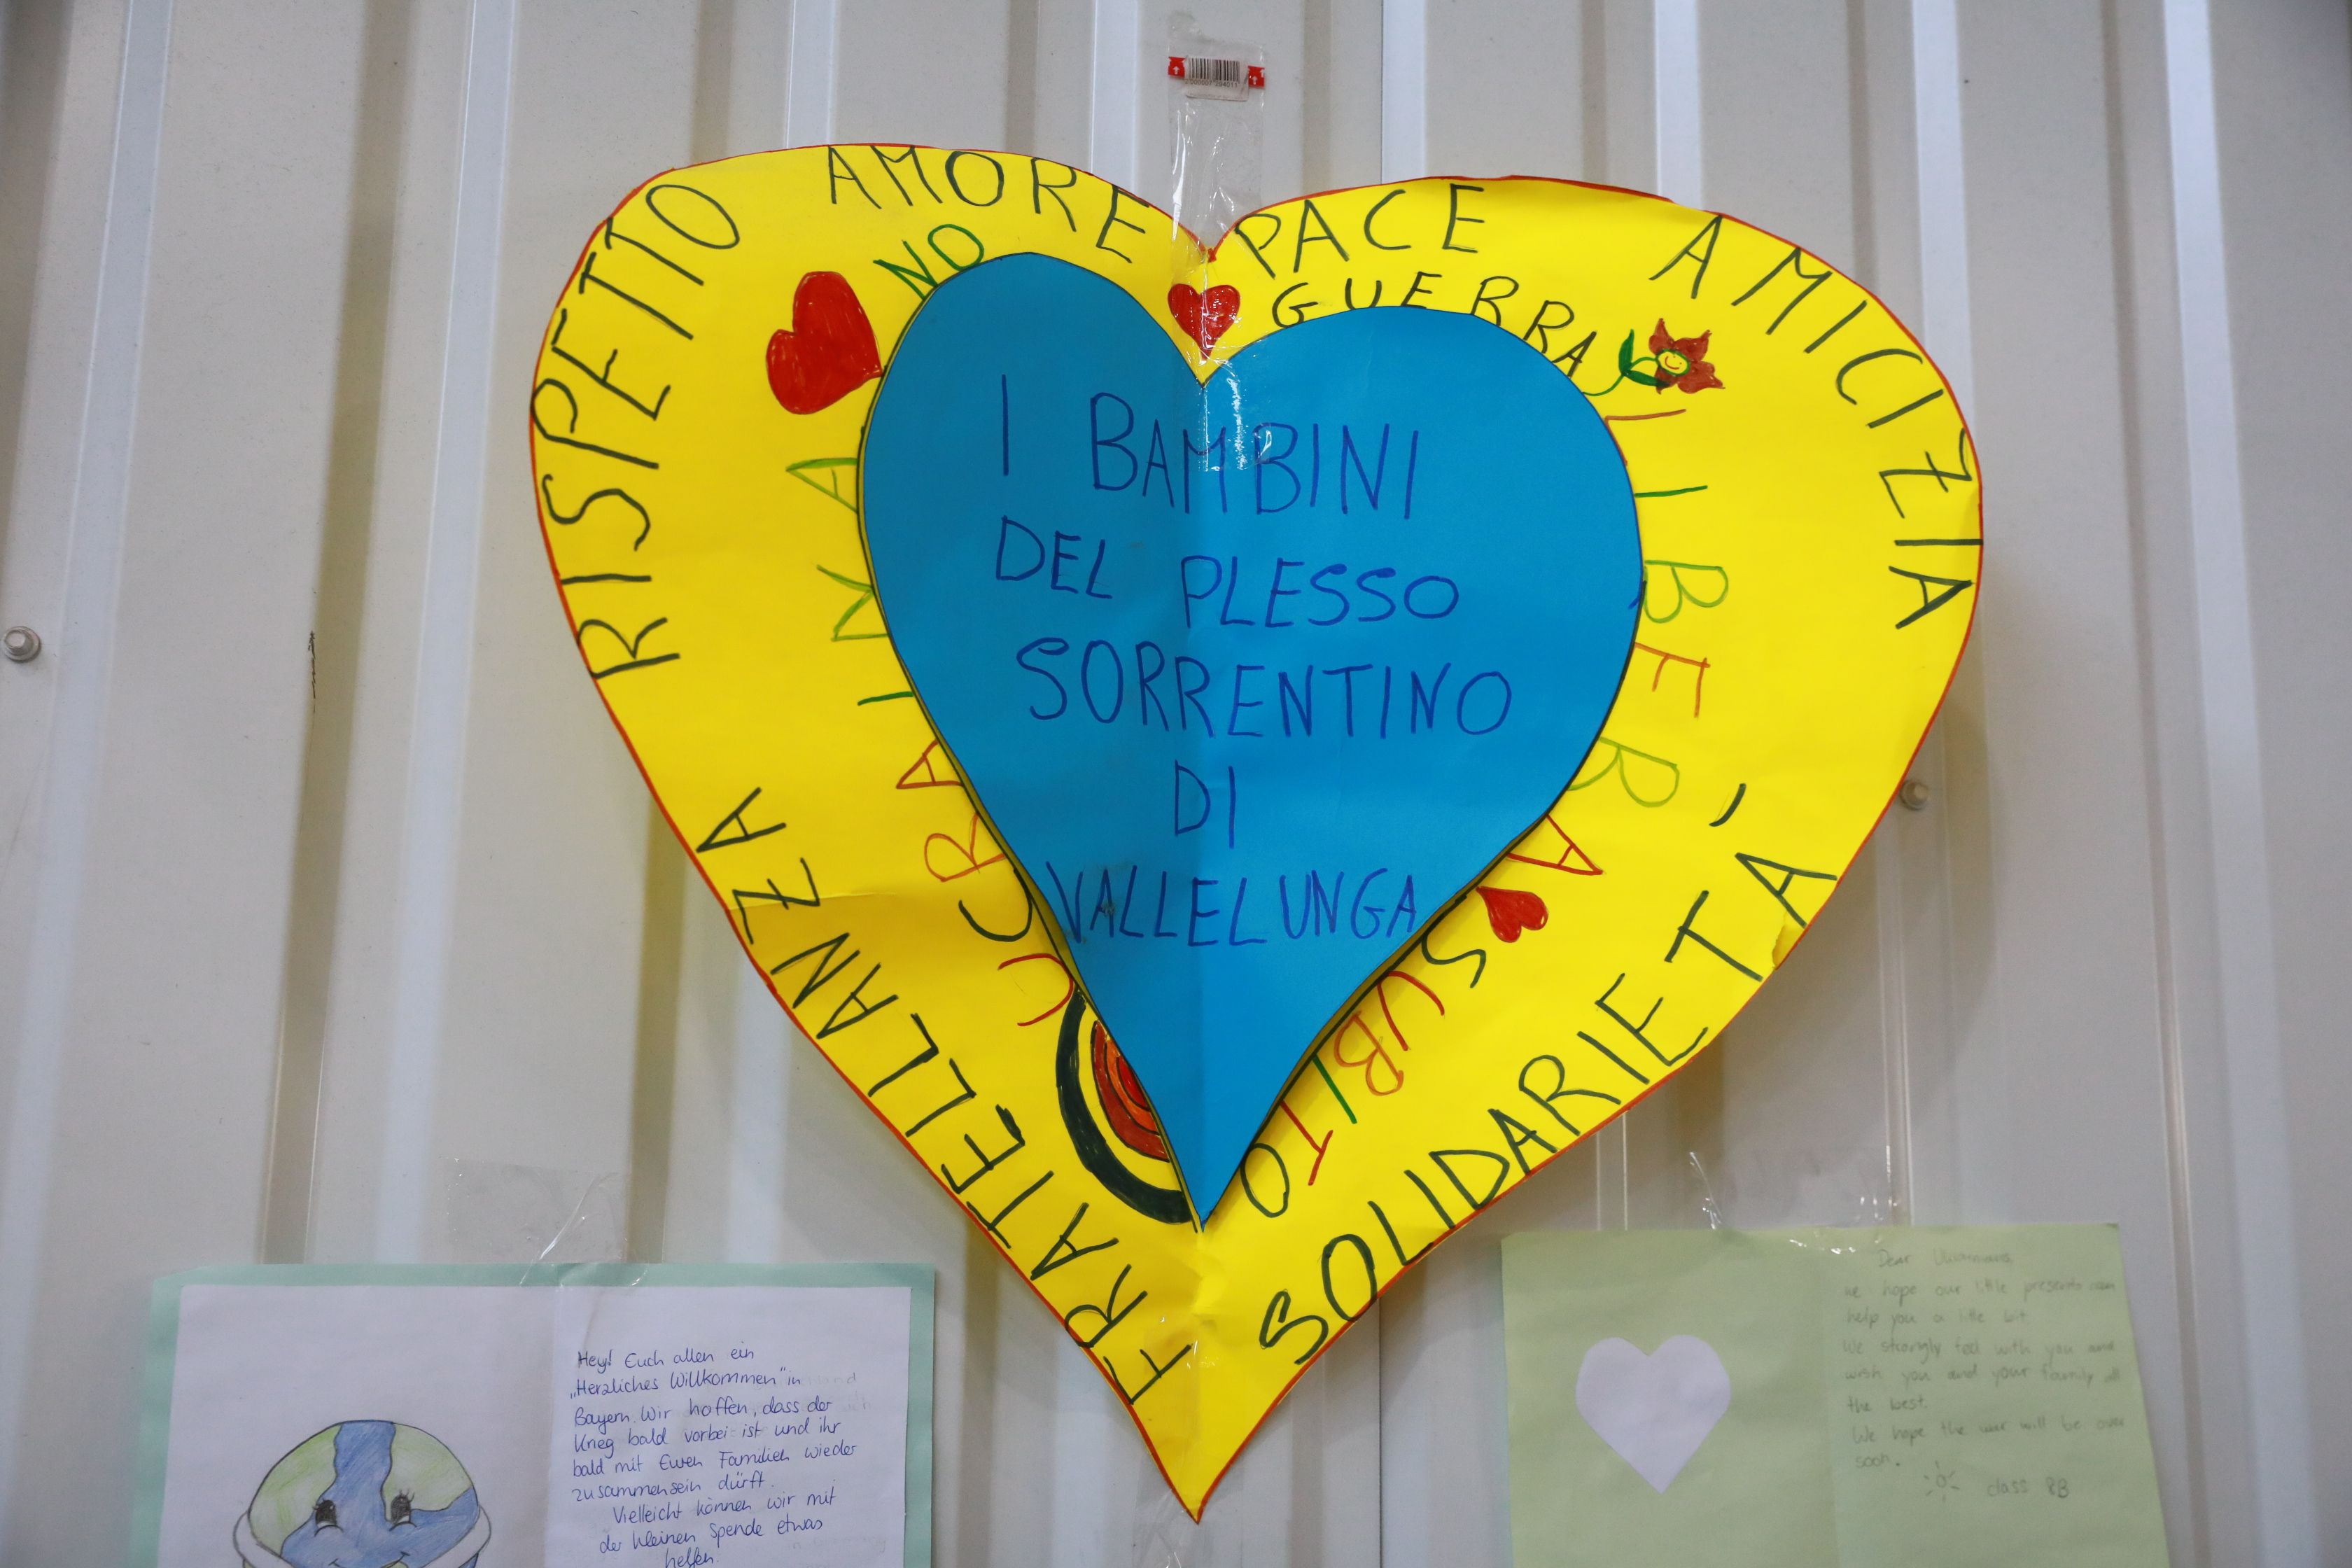 FRATELLANZA RISPETTO AMORE PACE AMICIZIA SOLIDARIETA'
NO GUERRA
UCRAINA LIBERA SUBITO
I BAMBINI
DEL PLESSO
SORRENTINO
DI
VALLELUNGA
Hey! Euch allen ein
„Herzliches Willkommen" in
Bayern. Wir hoffen, dass der
Krieg bald vorbei ist und ihr
bald mit Euren Familien wieder
zusammensein dürft.
Vielleicht können wir mit
der kleinen Spende etwas
helfen
Dear Ukrainians,
we hope our little presents can
help you a litle bit.
We strongly feel with you and
wish you and your family all
the best.
We hope the war will be over
soon.
class 8B